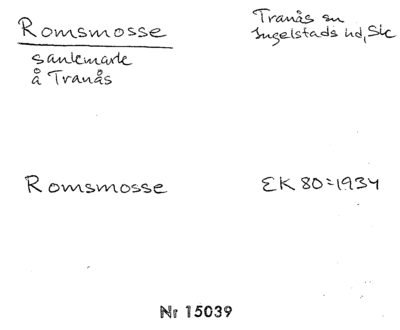 Romsmosse
Tranås sn
Ingelstads hd, Sk
sankmark
å Tranås
Romsmosse
EK 80=1934
Nr 15039